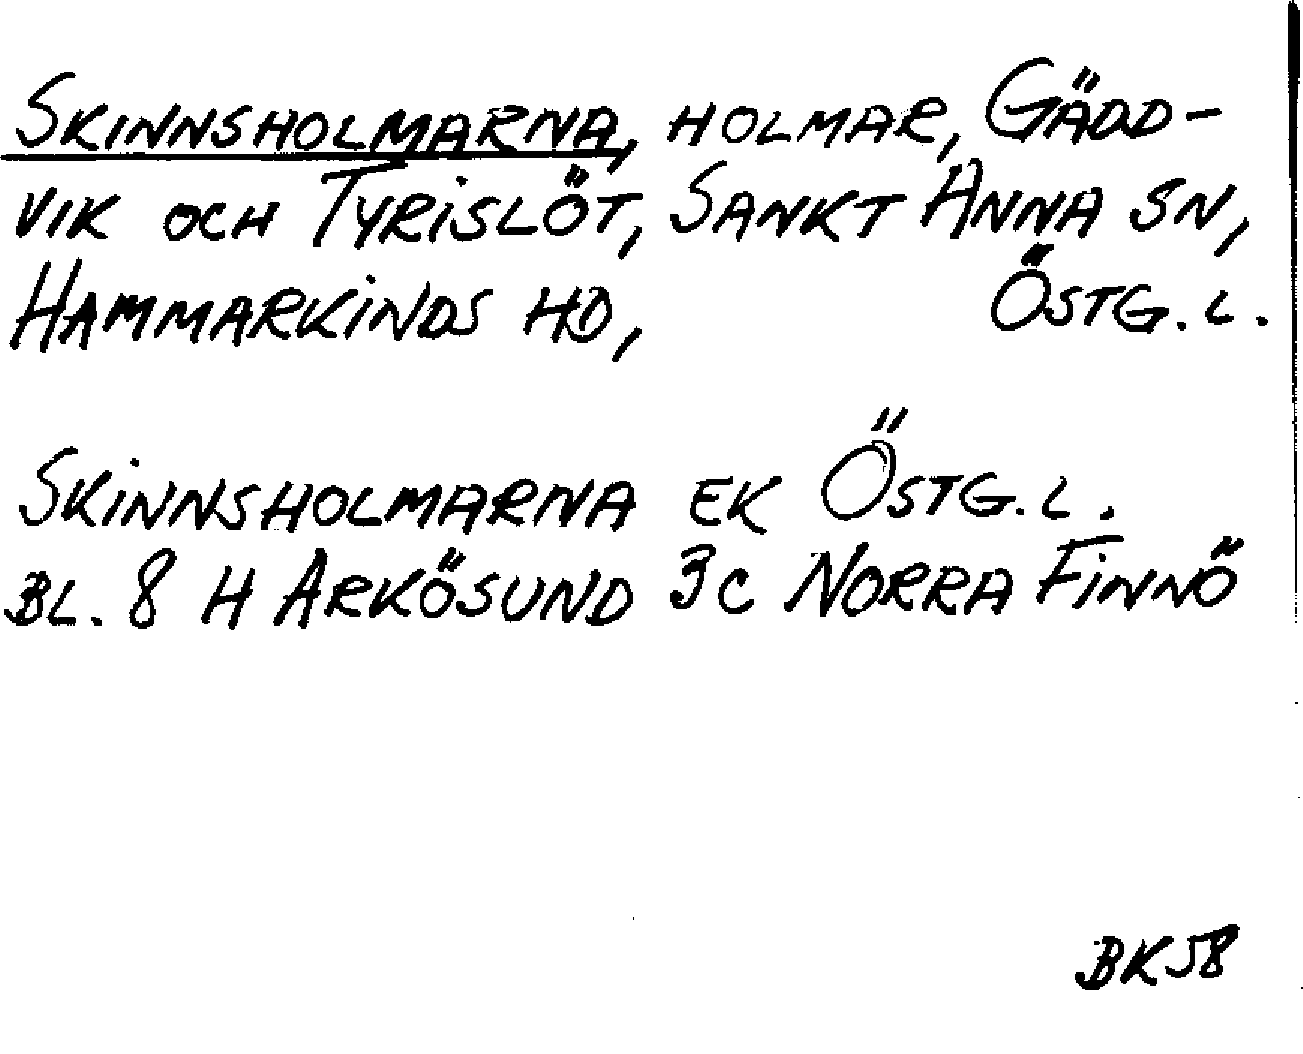 SKINNSHOLMARNA, HOLMAR, GÄDD-
VIK OCH TYRISLÖT, SANKT ANNA SN,
HAMMARKINDS HD, ÖSTG. L.
SKINNSHOLMARNA EK ÖSTG. L.
BL. 8 H ARKÖSUND 3C NORRA FINNÖ
BK58